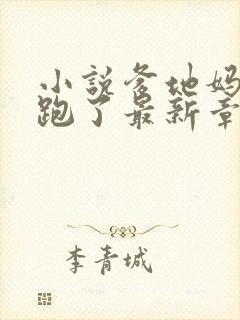 小说爹地妈
跑了最新章
李青城